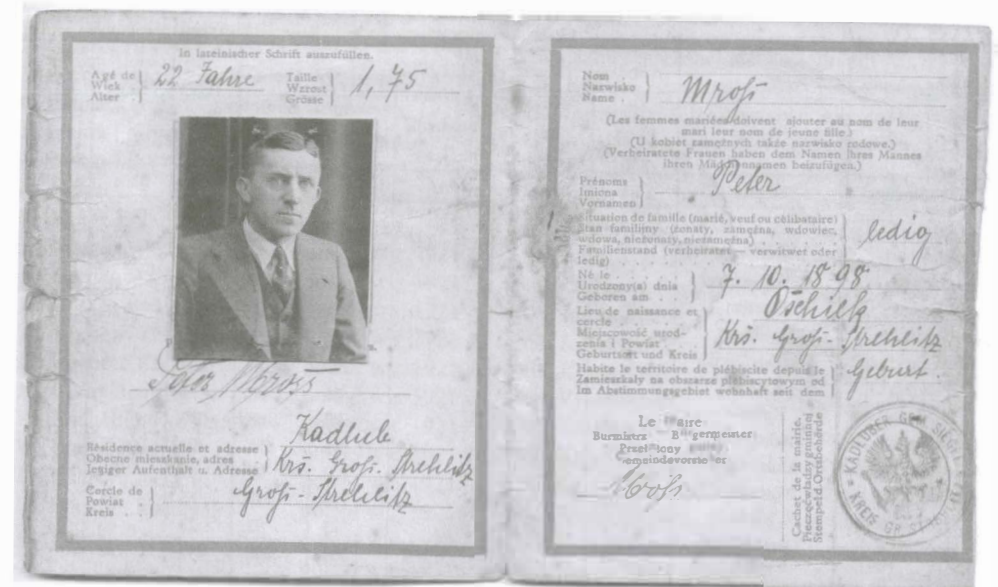 In lateinischer Schrift auszufüllen.
Age de
Wiek
Alter
22 Jahre
Taille
Wzrost
Grösse
1,75
Peter Mross
Kadlub
Résidence actuelle et adresse
Obecne mieszkanie, adres
Jetziger Aufenthalt u. Adresse
Krs. Groß-Strehlitz
Cercle de
Powiat
Kreis
Groß-Strehlitz
Nom
Nazwisko
Name
Mroß
(Les femmes mariées doivent ajouter au nom de leur
mari leur nom de jeune fille.)
(U kobiet zamężnych także nazwisko rodowe.)
(Verheiratete Frauen haben dem Namen ihres Mannes
ihren Mädchennamen beizufügen.)
Prénoms
Imiona
Vornamen
Peter
Situation de famille (marié, veuf ou célibataire)
Stan familijny (żonaty, zamężna, wdowiec,
wdowa, nieżonaty, niezamężna)
Familienstand (verheiratet — verwitwet oder
ledig)
ledig
Né le
Urodzony(a) dnia
Geboren am
7. 10. 1898
Lieu de naissance et
cercle
Miejscowość urod-
zenia i Powiat
Geburtsort und Kreis
Oschiek
Krs. Groß-Strehlitz
Habite le territoire de plébiscite depuis le
Zamieszkały na obszarze plebiscytowym od
Im Abstimmungsgebiet wohnhaft seit dem
Geburt.
Le Maire
Burmistrz Bürgermeister
Przełożony
Gemeindevorsteher
Mroß
Cachet de la mairie.
Pieczęć władzy gminnej
Stempel d. Ortsbehörde
KADLUBER
KREIS GR. ST